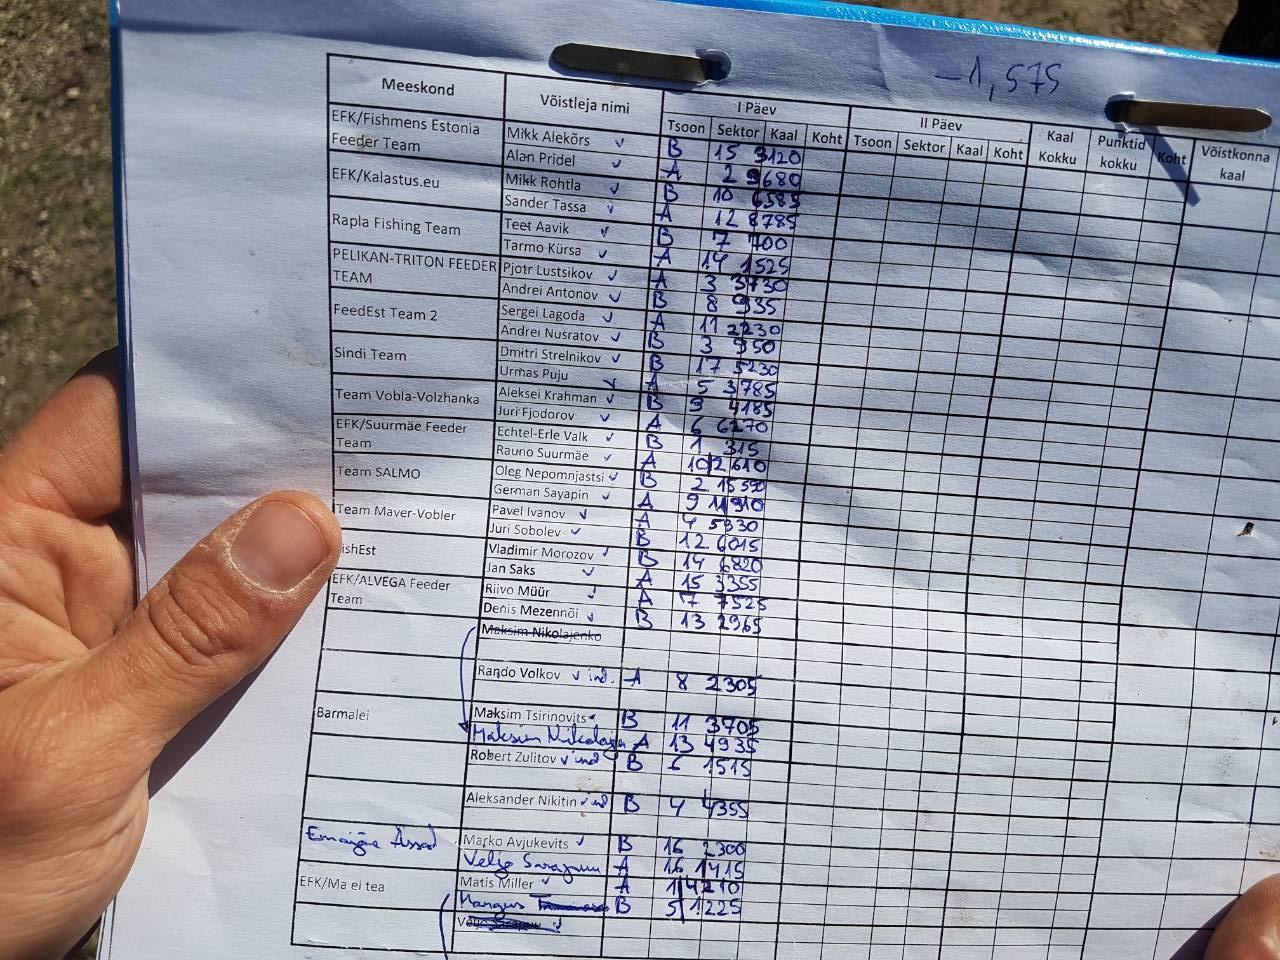 -1,575
Meeskond Võistleja nimi I Päev II Päev Kaal Kokku Punktid kokku Koht Võistkonna kaal
Tsoon Sektor Kaal Koht Tsoon Sektor Kaal Koht
EFK/Fishmens Estonia Feeder Team Mikk Alekõrs ✓ B 15 3120
Alan Pridel ✓ A 2 9680
EFK/Kalastus.eu Mikk Rohtla ✓ B 10 6585
Sander Tassa ✓ A 12 8785
Rapla Fishing Team Teet Aavik ✓ B 7 700
Tarmo Kürsa ✓ A 14 1525
PELIKAN-TRITON FEEDER TEAM Pjotr Lustsikov ✓ A 3 3730
Andrei Antonov ✓ B 8 935
FeedEst Team 2 Sergei Lagoda ✓ A 11 2230
Andrei Nusratov ✓ B 3 950
Sindi Team Dmitri Strelnikov ✓ B 17 5230
Urmas Puju ✓ A 5 3785
Team Vobla-Volzhanka Aleksei Krahman ✓ B 9 4185
Juri Fjodorov ✓ A 6 6270
EFK/Suurmäe Feeder Team Echtel-Erle Valk ✓ B 1 315
Rauno Suurmäe ✓ A 10 2610
Team SALMO Oleg Nepomnjastsi ✓ B 2 15590
German Sayapin ✓ A 9 11910
Team Maver-Vobler Pavel Ivanov ✓ A 4 5330
Juri Sobolev ✓ B 12 6015
ishEst Vladimir Morozov ✓ B 14 6820
Jan Saks ✓ A 15 3355
EFK/ALVEGA Feeder Team Riivo Müür ✓ A 7 7525
Denis Mezennõi ✓ B 13 2965
Maksim Nikolajenko
Rando Volkov ✓ ind. A 8 2305
Barmalei Maksim Tsirinovits ✓ B 11 3705
Maksim A 13 4935
Robert Zulitov ✓ ind B 6 1515
Aleksander Nikitin ✓ ind B 4 4355
Marko Avjukevits ✓ B 16 2300
Veljo A 16 1415
EFK/Ma ei tea Matis Miller ✓ A 1 4210
Margus B 5 1225
Veljo ✓